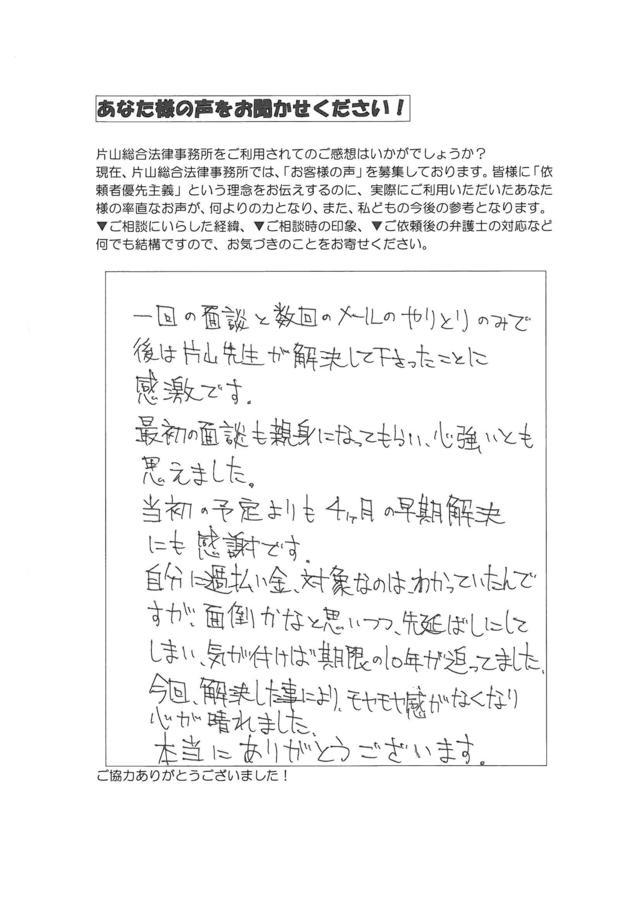 あなた様の声をお聞かせください！
片山総合法律事務所をご利用されてのご感想はいかがでしょうか？
現在、片山総合法律事務所では、「お客様の声」を募集しております。皆様に「依
頼者優先主義」という理念をお伝えするのに、実際にご利用いただいたあなた
様の率直なお声が、何よりの力となり、また、私どもの今後の参考となります。
▼ご相談にいらした経緯、▼ご相談時の印象、▼ご依頼後の弁護士の対応など
何でも結構ですので、お気づきのことをお寄せください。
一回の面談と数回のメールのやりとりのみで
後は片山先生が解決して下さったことに
感激です。
最初の面談も親身になってもらい、心強いとも
思えました。
当初の予定よりも4ヶ月の早期解決
にも感謝です。
自分に過払い金、対象なのは、わかっていたんで
すが、面倒かなと思いつつ、先延ばしにして
しまい、気が付けば期限の10年が迫ってました、
今回、解決した事により、モヤモヤ感がなくなり
心が晴れました、
本当にありがとうございます。
ご協力ありがとうございました！